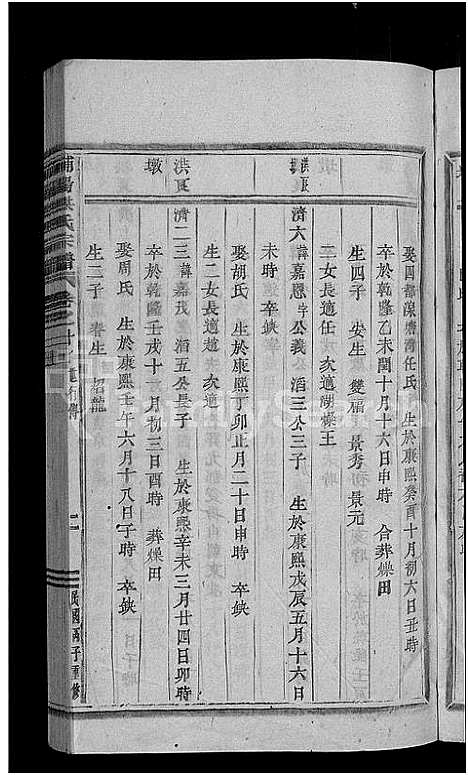 娶四都深塘灣任氏 生於康熙癸酉十月初六日丑時
卒於乾隆乙未閏十月十六日申時 合葬燥田
生四子 安生 雙福 景秀 景元
二女長適任 次適湖燥王
濟六 諱嘉恩字公義 滔三公三子 生於康熙戊辰五月十六日
未時 卒缺
娶胡氏 生於康熙丁卯正月二十日申時 卒缺
生二女長適趙 次適
洪瓦墩
濟二三 諱嘉茂 滔五公長子 生於康熙辛未三月廿四日卯時
卒於乾隆壬戌十一月初三日酉時 葬燥田
娶周氏 生於康熙壬午六月十八日子時 卒缺
生二子 春生 招龍
浦陽洪氏宗譜 卷之廿 行傳
二
民國丙子重修